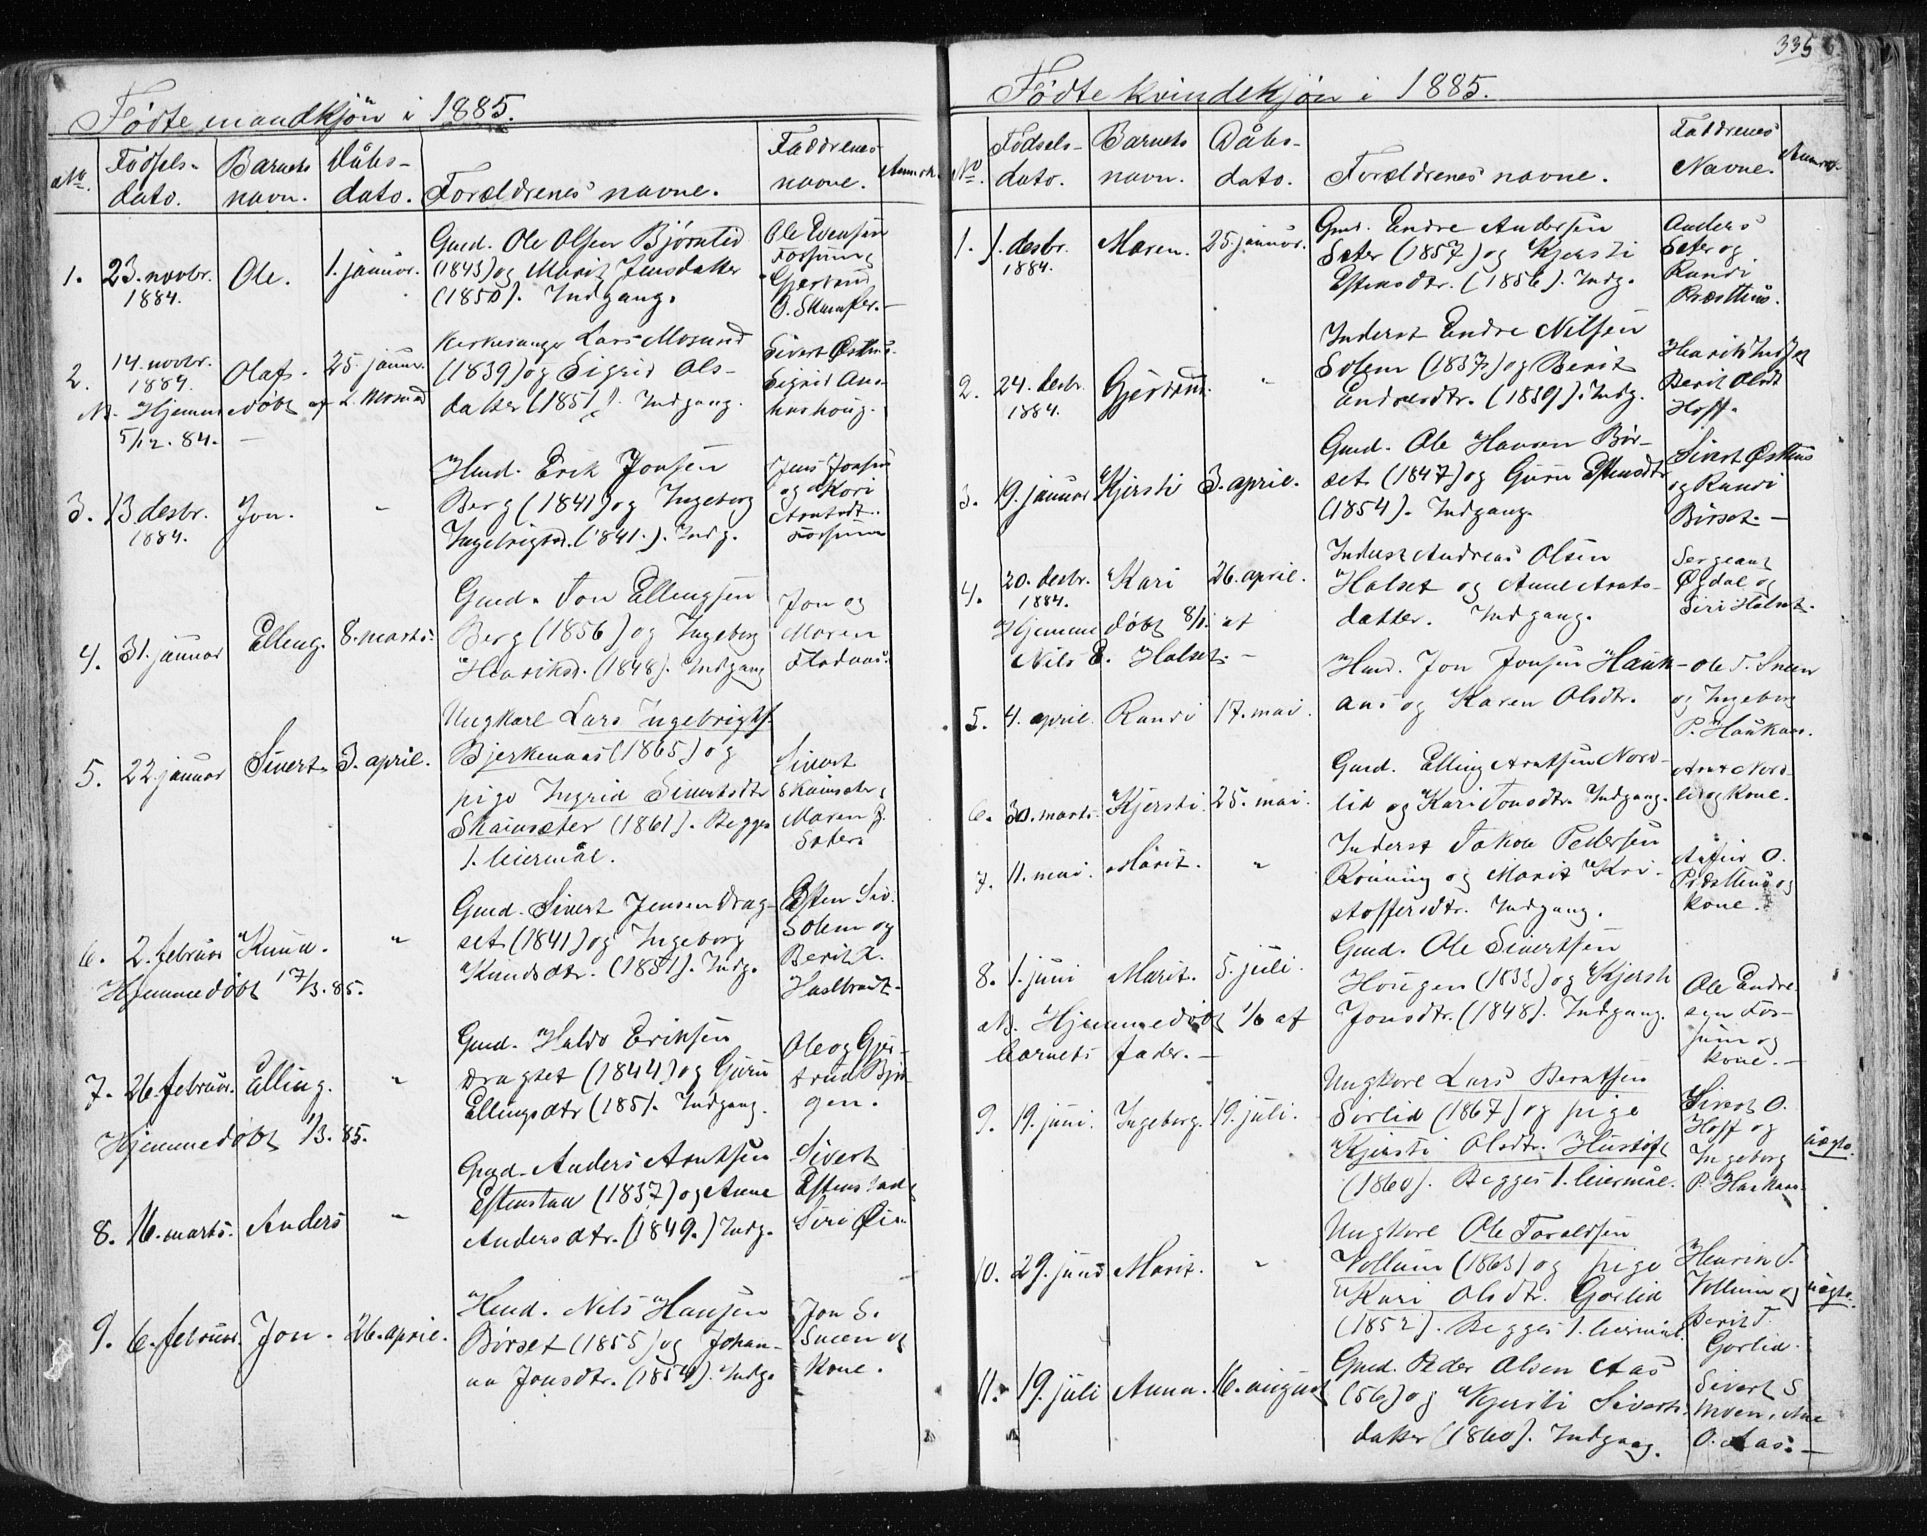 Födte mandkjön i 1885.
No. Födsels-dato. Barnets navn. Dåbs-dato. Forældrenes navne. Faddrenes navne. Anmrk.
1. 23. novbr. 1884. Ole. 1. januar.
Gmd. Ole Olsen Bjørnlid
(1843) og Marit Jensdatter
(1850). Indgang.
Ole Evensen
Fossum,
Gjertrud
O. Skamfer.
2. 14. novbr. 1884. Olaf. 25. januar.
Kirkesanger Lars Mosund
(1839) og Sigrid Ols-
datter (1851). Indgang.
Sivert Østhus.
Sigrid Aus-
houg.
N. Hjemmedöbt af L. Mosund
5/12. 84.
3. 13 desbr. 1884. Jon. "
Hmd. Erik Jonsen
Berg (1841) og Ingeborg
Ingebrigtsd. (1841.). Indg.
Jens Jonsen
og Kari
Arntsdt.
Fossum
4. 31. januar Elling. 8. marts.
Gmd. Jon Ellingsen
Berg (1856) og Ingeborg
Henriksd. (1848). Indgang
Jon og
Maren
Flodaas.
5. 22. januar Sivert. 3. april.
Ungkarl Lars Ingebrigts.
Bjerkenaas (1865) og
pige Ingrid Sivertsdtr
Skamsæter (1861). Begges
1. leiermål.
Sivert
Skamseter,
Maren J.
Seter.
6. 2. februar Knud. "
Gmd. Sivert Jensen Drag-
set (1841) og Ingeborg
Knudsdtr. (1851). Indg.
Esten Siv.
Solem og
Berit K.
Haslbradt.
Hjemmedöbt 17/3. 85.
7. 26. februar. Elling. "
Gmd. Haldo Eriksen
Dragset (1844) og Guru
Ellingsdtr (1851. Indgang.
Ole og Gjer-
trud Bjø-
gen.
Hjemmedöbt 1/3. 85.
8. 16. marts. Anders "
Gmd. Anders Arntsen
Estenstad (1837) og Anne
Andersdtr. (1849.) Indg.
Sivert
Estenstad,
Siri Øie
9. 6. februar. Jon. 26. april.
Hmd. Nils Hansen
Börset (1855) og Johan-
na Jonsdtr. (1854). Indg.
Jon S.
Sneen og
kone.
335
Födte kvindekjön i 1885.
No. Födsels-dato. Barnets navn. Dåbs-dato. Forældrenes navne. Faddrenes Navne. Anmrk.
1. 1. desbr. 1884. Maren. 25. januar.
Gmd. Endre Andersen
Seter (1857) og Kjersti
Estensdtr. (1856). Indg.
Anders
Seter og
Randi
Præsthus.
2. 24. desbr. 1884. Gjertrud. "
Inderst Endre Nilsen
Solem (1837) og Berit
Endresdtr. (1839). Indg.
Berit Olsdt
Hoff.
3. 19. januar Kjersti 3. april.
Gmd. Ole Hansen Bör-
set (1847) og Guru Estensdtr
(1854). Indgang.
Sivert Østhus
og Randi
Börset.
4. 20. desbr. 1884. Kari 26. april.
Inderst Andreas Olsen
Halset og Anne Arnts-
datter. Indgang.
Sergeant
Øydal og
Siri Halset.
Hjemmedöbt 8/1. af
Nils E. Halset.
5. 4. april. Randi 17. mai.
Hmd. Jon Jonsen Hauk-
aas og Karen Olsdtr.
Ole T. Sneen
og Ingeborg
P. Haukaas.
6. 30. marts. Kjersti. 25. mai.
Gmd. Elling Arntsen Nord-
lid og Kari Jonsdtr. Indgang.
Arnt Nord-
lid og kone.
7. 11. mai. Marit. "
Inderst Jakob Pedersen
Rönning og Marit Kri-
stoffersdtr. Indgang.
O.
Præsthus og
kone.
8. 1. juni Marit. 5. juli.
Gmd. Ole Sivertsen
Hougen (1833) og Kjersti
Jonsdtr. (1848). Indgang.
Ole Endre-
sen Fos-
sum og
kone.
N. Hjemmedöbt 1/6 af
barnets fader.
9. 19. juni. Ingeborg. 19. juli.
Ungkarl Lars Berntsen
Sörlid (1867) og pige
Kjersti Olsdtr. Hustoft
(1860). Begges 1. leiermål.
Sivert O.
Hoff og
Ingeborg
P. Haukaas.
uægte.
10. 29. juni Marit. "
Ungkarl Ole Toraldsen
Vollum (1863) og pige
Kari Olsdtr. Gorlid
(1852). Begges 1. leiermål.
Henrik T.
Vollum og
Berit T.
Gorlid.
uægte.
11. 19. juli Anna. 16. august
Gmd. Peder Olsen Aas
(56) og Kjersti Siverts-
datter (1860). Indgang.
Sivert S
Moen, Ane
O. Aas.